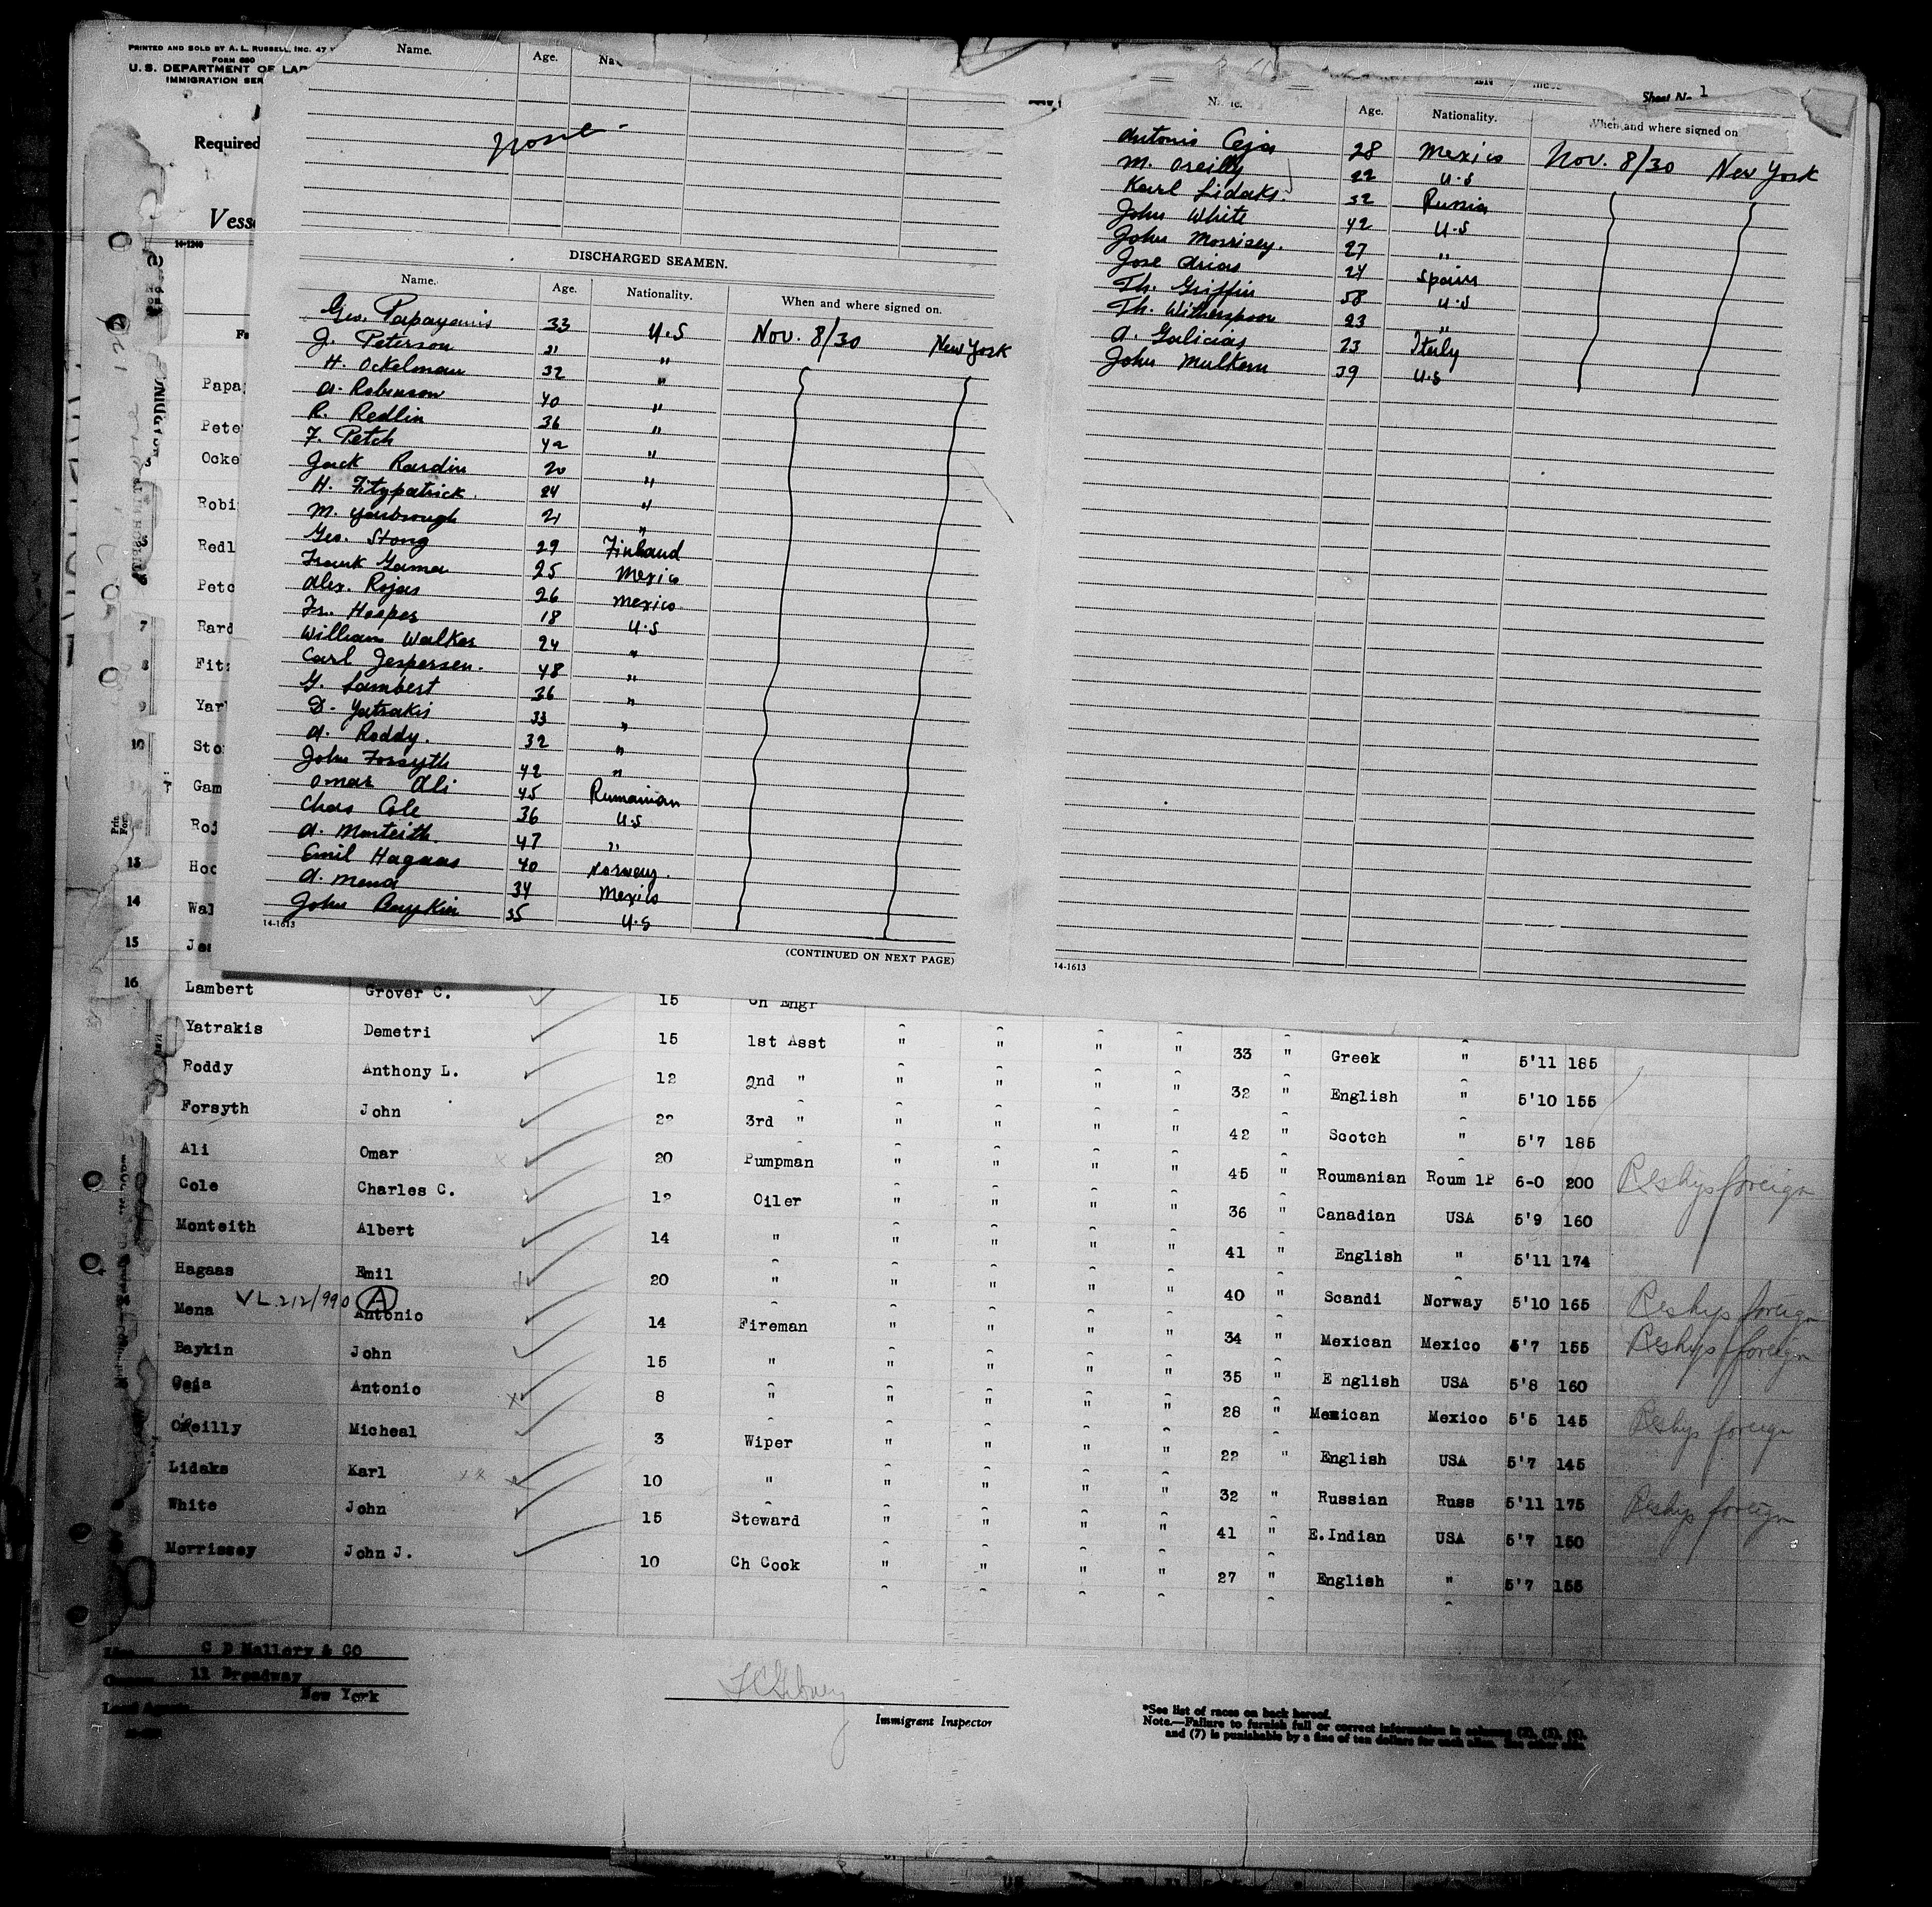 PRINTED AND SOLD BY A. L. RUSSELL, INC. 47
FORM 680
U. S. DEPARTMENT OF LAB
IMMIGRATION SER
Required
Vess
14-1240
Name. Age. Na
none
DISCHARGED SEAMEN.
Name. Age. Nationality. When and where signed on.
Geo. Papayanis 33 U.S Nov. 8/30 New York
J. Peterson 31 "
H. Ockelman 32 "
A. Robinson 40 "
R. Redlin 36 "
F. Petch 42 "
Jack Rardin 20 "
H. Fitzpatrick. 24 "
M. Yarbrough 21 "
Geo. Stong 29 Finland
Frank Gama 25 Mexico
Alex. Rojas 26 Mexico
Fr. Hooper 18 U.S
William Walker 24 "
Carl Jespersen. 48 "
G. Lambert 36 "
D. Yatrakis 33 "
A. Roddy. 32 "
John Forsyth 42 "
Omar Ali 45 Rumanian
Chas Cole 36 U.S
A. Monteith. 47 "
Emil Hagaas 40 Norway.
A. Mena 34 Mexico
John Baykin 35 U.S
14-1613
(CONTINUED ON NEXT PAGE)
Sheet No 1
Name. Age. Nationality. When and where signed on
Antonio Ceja 28 Mexico Nov. 8/30 New York
M. Oreilly 22 U.S
Karl Lidaks. 32 Russia
John White 42 U.S
John Morrisey. 27 "
Jose Arias 24 Spain
Th. Griffin 58 U.S
Th. Witherspoon 23 "
A. Galicias 23 Italy
John Mulkern 39 U.S
14-1613
Papa
Pete
Ocke
Robi
Redl
Petc
7 Rard
8 Fitz
9 Yar
10 Sto
Gam
Roj
13 Hoo
14 Wal
15 Je
16 Lambert Grover C. 15 Ch Engr
Yatrakis Demetri 15 1st Asst " " " " 33 " Greek " 5'11 185
Roddy Anthony L. 12 2nd " " " " " 32 " English " 5'10 155
Forsyth John 22 3rd " " " " " 42 " Scotch " 5'7 185
Ali Omar 20 Pumpman " " " " 45 " Roumanian Roum 1P 6-0 200 Reships foreign
Cole Charles C. 12 Oiler " " " " 36 " Canadian USA 5'9 160
Monteith Albert 14 " " " " " 41 " English " 5'11 174
Hagaas Emil 20 " " " " " 40 " Scandi Norway 5'10 165 Reships foreign
VL.212/990 A
Mena Antonio 14 Fireman " " " " 34 " Mexican Mexico 5'7 155 Reships foreign
Baykin John 15 " " " " " 35 " E nglish USA 5'8 160
Ceja Antonio 8 " " " " " 28 " Mexican Mexico 5'5 145 Reships foreign
O'Reilly Micheal 3 Wiper " " " " 22 " English USA 5'7 145
Lidaks Karl 10 " " " " " 32 " Russian Russ 5'11 175 Reships foreign
White John 15 Steward " " " " 41 " E.Indian USA 5'7 150
Morrissey John J. 10 Ch Cook " " " " 27 " English " 5'7 155
C D Mallory & CO
11 Broadway
New York
Immigrant Inspector
*See list of races on back hereof.
Note.—Failure to furnish full or correct information in columns (2), (5), (6),
and (7) is punishable by a fine of ten dollars for each alien. See other side.